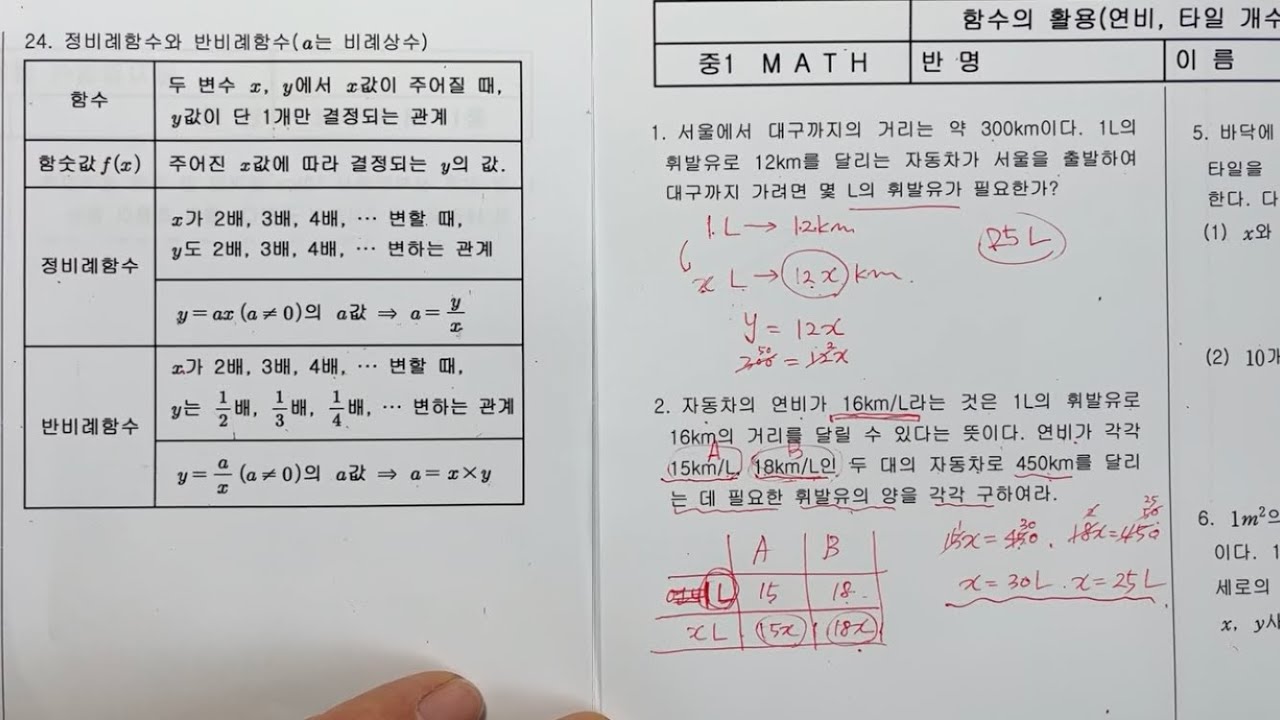 24. 정비례함수와 반비례함수(a는 비례상수)
함수
두 변수 x, y에서 x값이 주어질 때,
y값이 단 1개만 결정되는 관계
함숫값 f(x)
주어진 x값에 따라 결정되는 y의 값.
정비례함수
x가 2배, 3배, 4배, ⋯ 변할 때,
y도 2배, 3배, 4배, ⋯ 변하는 관계
y=ax (a≠0)의 a값 ⇒ a=y/x
반비례함수
x가 2배, 3배, 4배, ⋯ 변할 때,
y는 1/2배, 1/3배, 1/4배, ⋯ 변하는 관계
y=a/x (a≠0)의 a값 ⇒ a=x×y
함수의 활용(연비, 타일 개수
중1 MATH
반 명
이 름
1. 서울에서 대구까지의 거리는 약 300km이다. 1L의
휘발유로 12km를 달리는 자동차가 서울을 출발하여
대구까지 가려면 몇 L의 휘발유가 필요한가?
1L → 12km
x L → 12x km.
25 L
y = 12x
50 2
300 = 12x
2. 자동차의 연비가 16km/L라는 것은 1L의 휘발유로
16km의 거리를 달릴 수 있다는 뜻이다. 연비가 각각
A B
15km/L, 18km/L인 두 대의 자동차로 450km를 달리
는 데 필요한 휘발유의 양을 각각 구하여라.
A B
1L 15 18
xL 15x 18x
30 25
50
15x = 450. 18x = 450
x = 30L. x = 25L
5. 바닥에
타일을
한다. 다
(1) x와
(2) 10개
6. 1m²의
이다. 1
세로의
x, y사